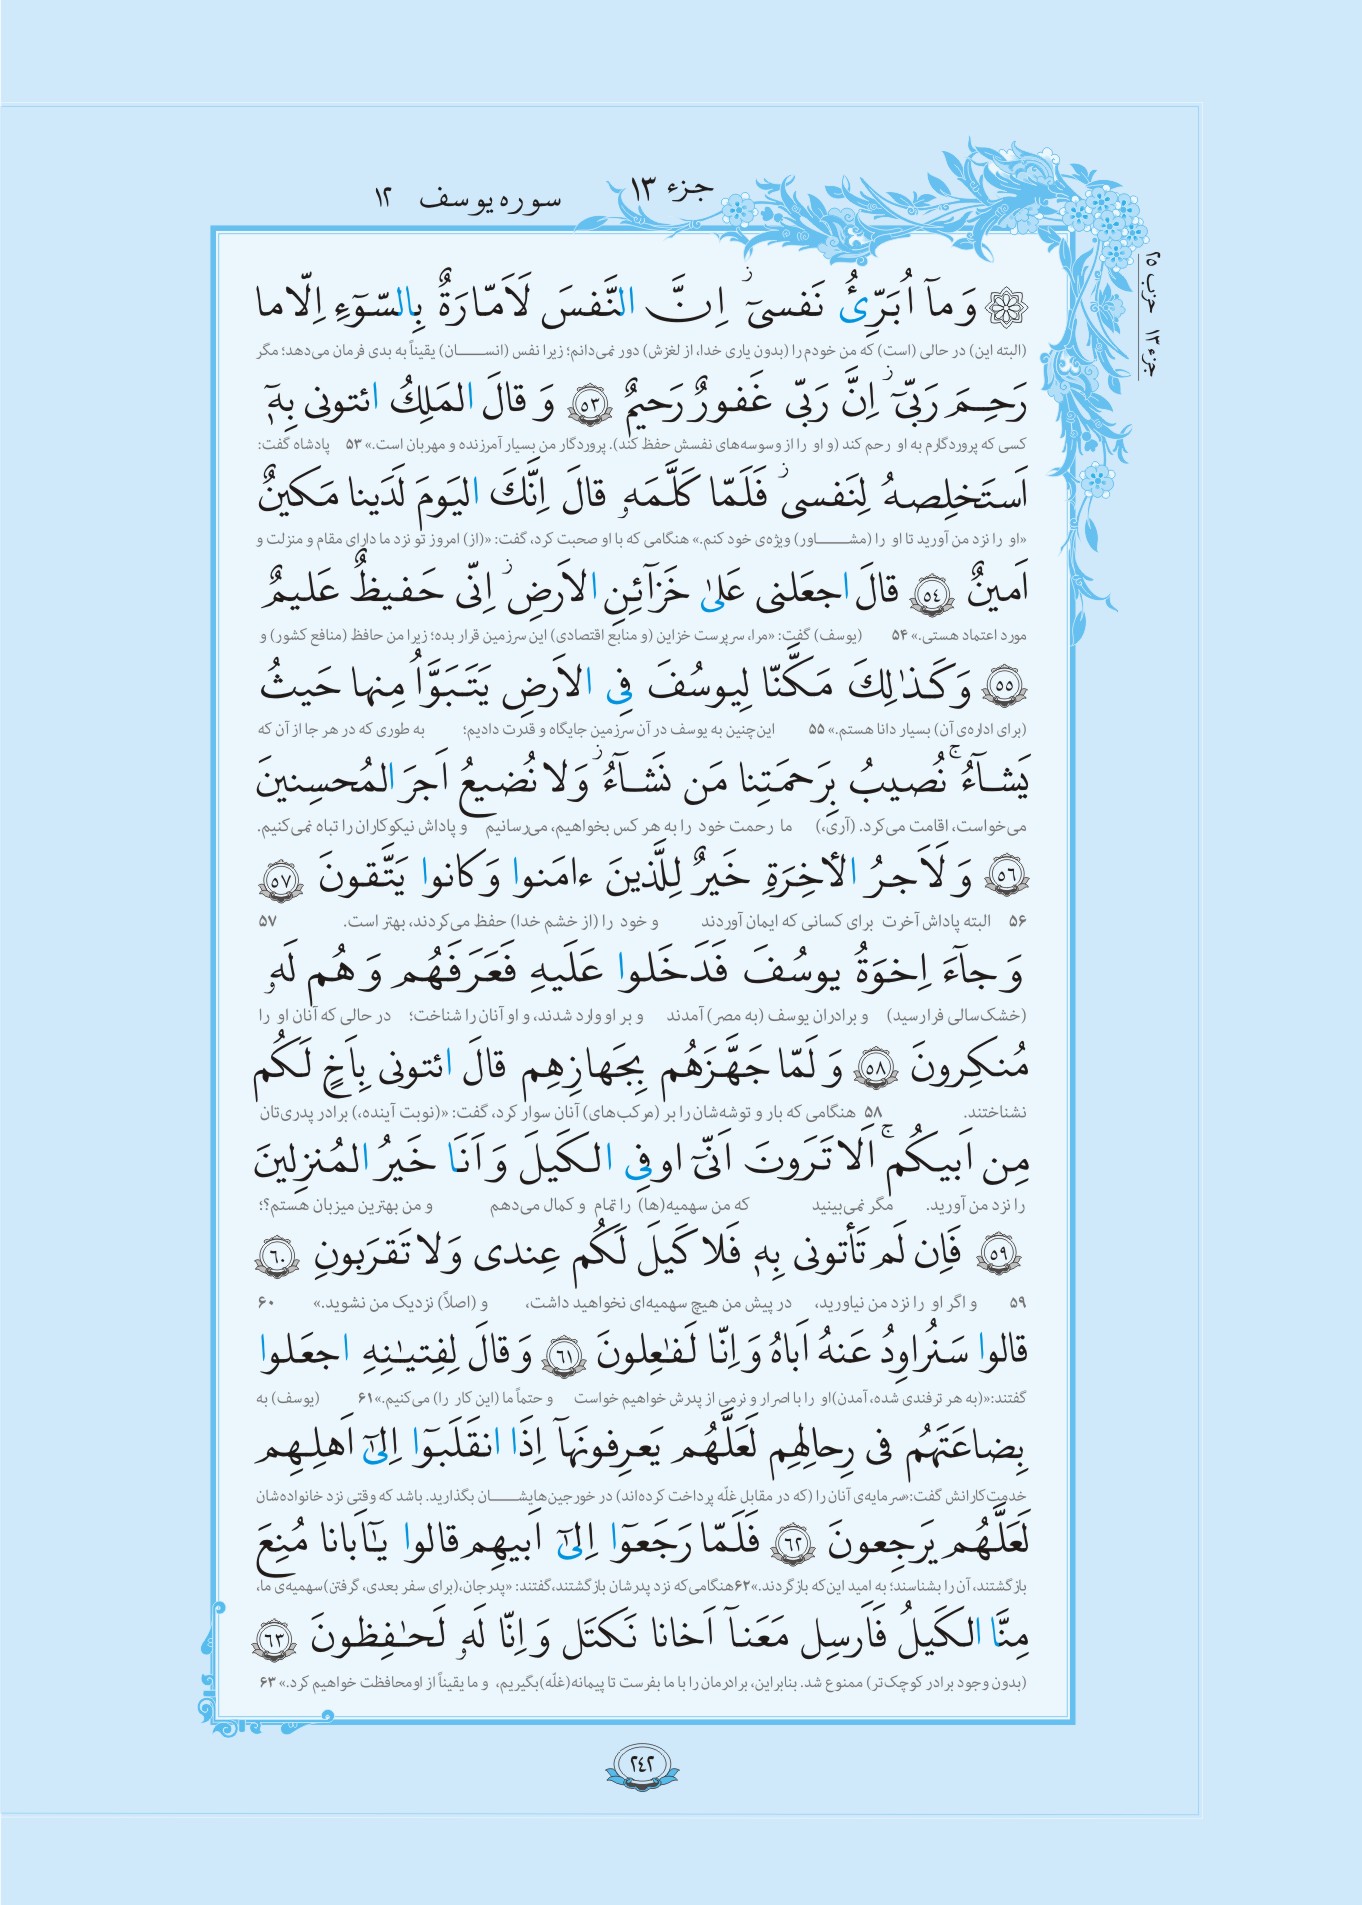 جزء ١٣
سوره یوسف ١٢
جزء ١٣ حزب ٢۵
وَ مآ اُبَرِّئُ نَفسیٓ ز اِنَّ النَّفسَ لَاَمّارَةٌ بِالسّوٓءِ اِلّا ما
(البته این) در حالی (است) که من خودم را (بدون یاری خدا، از لغزش) دور نمی‌دانم؛ زیرا نفس (انســـــان) یقیناً به بدی فرمان می‌دهد؛ مگر
رَحِـمَ رَبّیٓ ز اِنَّ رَبّی غَفورٌ رَحیمٌ ﴿٥٣﴾ وَ قالَ المَلِكُ ائتونی بِهٖٓ
کسی که پروردگارم به او رحم کند (و او را از وسوسه‌های نفسش حفظ کند). پروردگار من بسیار آمرزنده و مهربان است.» ۵۳ پادشاه گفت:
اَستَخلِصهُ لِنَفسی ز فَلَمّا کَلَّمَهٗ قالَ اِنَّكَ الیَومَ لَدَینا مَکینٌ
«او را نزد من آورید تا او را (مشـــــاور) ویژه‌ی خود کنم.» هنگامی که با او صحبت کرد، گفت: «(از) امروز تو نزد ما دارای مقام و منزلت و
اَمینٌ ﴿٥٤﴾ قالَ اجعَلنی عَلیٰ خَزآئِنِ الاَرضِ ز اِنّی حَفیظٌ عَلیمٌ
مورد اعتماد هستی.» ۵۴ (یوسف) گفت: «مرا، سرپرست خزاین (و منابع اقتصادی) این سرزمین قرار بده؛ زیرا من حافظ (منافع کشور) و
﴿٥٥﴾ وَ کَـذٰلِكَ مَکَّنّا لِیوسُفَ فِی الاَرضِ یَتَـبَوَّاُ مِنها حَیثُ
(برای اداره‌ی آن) بسیار دانا هستم.» ۵۵ این‌چنین به یوسف در آن سرزمین جایگاه و قدرت دادیم؛ به طوری که در هر جا از آن که
یَشـآءُ ج نُصیبُ بِرَحمَتِنا مَن نَشـآءُ ز وَ لا نُضیعُ اَجرَ المُحسِنینَ
می‌خواست، اقامت می‌کرد. (آری،) ما رحمت خود را به هر کس بخواهیم، می‌رسانیم و پاداش نیکوکاران را تباه نمی‌کنیم.
﴿٥٦﴾ وَ لَاَجرُ الأخِرَةِ خَیرٌ لِلَّذینَ ءامَنوا وَ کانوا یَتَّقونَ ﴿٥٧﴾
۵۶ البته پاداش آخرت برای کسانی که ایمان آوردند و خود را (از خشم خدا) حفظ می‌کردند، بهتر است. ۵۷
وَ جآءَ اِخوَةُ یوسُفَ فَدَخَلوا عَلَیهِ فَعَرَفَهُم وَ هُم لَهٗ
(خشک‌سالی فرا رسید) و برادران یوسف (به مصر) آمدند و بر او وارد شدند، و او آنان را شناخت؛ در حالی که آنان او را
مُنکِرونَ ﴿٥٨﴾ وَ لَمّا جَهَّزَهُم بِجَهازِهِم قالَ ائتونی بِاَخٍ لَکُم
نشناختند. ۵۸ هنگامی که بار و توشه‌شان را بر (مرکب‌های) آنان سوار کرد، گفت: «(نوبت آینده،) برادر پدری‌تان
مِن اَبیکُم ج اَلا تَرَونَ اَنّیٓ اوفِی الکَیلَ وَ اَنَا خَیرُ المُنزِلینَ
را نزد من آورید. مگر نمی‌بینید که من سهمیه(ها) را تمام و کمال می‌دهم و من بهترین میزبان هستم؟؛
﴿٥٩﴾ فَاِن لَم تَأتونی بِهٖ فَلا کَیلَ لَکُم عِندی وَ لا تَقرَبونِ ﴿٦٠﴾
۵۹ و اگر او را نزد من نیاورید، در پیش من هیچ سهمیه‌ای نخواهید داشت، و (اصلاً) نزدیک من نشوید.» ۶۰
قالوا سَنُراوِدُ عَنهُ اَباهُ وَ اِنّا لَفٰعِلونَ ﴿٦١﴾ وَ قالَ لِفِتیٰنِهِ اجعَلوا
گفتند:«(به هر ترفندی شده، آمدن)او را با اصرار و نرمی از پدرش خواهیم خواست و حتماً ما (این کار را) می‌کنیم.»۶۱ (یوسف) به
بِضاعَتَهُم فی رِحالِهِم لَعَلَّهُم یَعرِفونَهآ اِذَا انقَلَبوٓا اِلیٰٓ اَهلِـهِم
خدمت‌کارانش گفت:«سرمایه‌ی آنان را (که در مقابل غلّه پرداخت کرده‌اند) در خورجین‌هایشـــــان بگذارید. باشد که وقتی نزد خانواده‌شان
لَعَلَّهُم یَرجِعونَ ﴿٦٢﴾ فَلَمّا رَجَعوٓا اِلیٰٓ اَبیهِم قالوا یٰٓاَبانا مُنِعَ
بازگشتند، آن را بشناسند؛ به امید این‌که بازگردند.»۶۲هنگامی‌که نزد پدرشان بازگشتند،گفتند: «پدرجان،(برای سفر بعدی، گرفتن)سهمیه‌ی ما،
مِنَّا الکَیلُ فَاَرسِل مَعَنآ اَخانا نَکتَل وَ اِنّا لَهٗ لَحٰفِظونَ ﴿٦٣﴾
(بدون وجود برادر کوچک‌تر) ممنوع شد. بنابراین، برادرمان را با ما بفرست تا پیمانه(غلّه)بگیریم، و ما یقیناً از اومحافظت خواهیم کرد.» ۶۳
٢٤٢